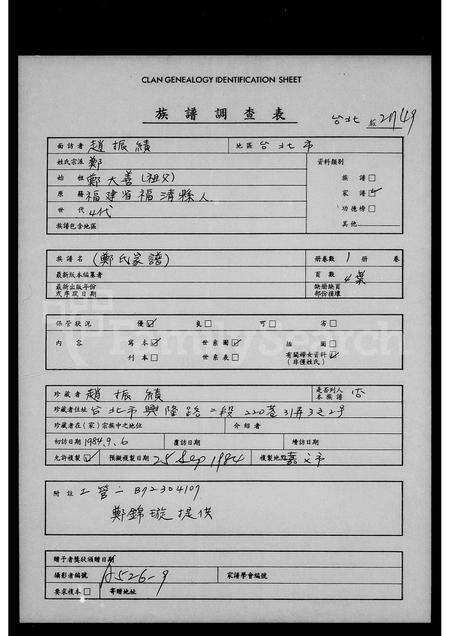 CLAN GENEALOGY IDENTIFICATION SHEET
族譜調查表
台北 2749
面訪者 趙振績 地區 台北市
姓氏宗派 鄭 資料類別
始祖 鄭大善(祖父) 族譜☐
原籍 福建省福清縣人 家譜☑
世代 4代 功德榜☐
族譜包含地區 其他
族譜名 (鄭氏家譜) 册卷數 1 册 卷
最新版本編纂者 頁數 4葉
最新出版年份 缺頁
或序跋日期
保管狀況 優☑ 良☐ 可☐ 布☐
內容 寫本☑ 世系圖☑ 插圖☐
刊本☐ 世系表☐ 有關婦女資料☑
(非僅姓氏)
FamilySearch
珍藏者 趙振績 是否列入本族譜 否
珍藏者住址 台北市興隆路二段220巷31弄3之2号
珍藏者在(家)宗族中之地位 介紹者
初訪日期 1984.9.6 覆訪日期 增訪日期
允許複製☑ 預擬複製日期 25 Sep 1984 複製地點 嘉义市
附註 工管二 B72304107
鄭錦璇提供
贈予者獎狀頒贈日期
攝影者編號 A526-9 家譜學會編號
要求複本☐ 寄贈地址